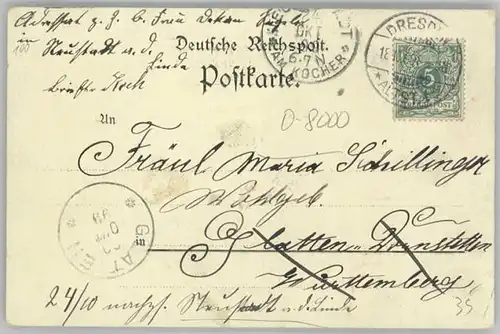 Adressat z. Z. b. Frau Dekan
in Neustadt a. d. Linde
Deutsche Reichspost.
Postkarte.
NEUSTADT
OKT
6-7 N
AM KOCHER
DRESDEN
ALTST.
5
REICHSPOST
An
0-8000
Fräul Maria Schillinger
Wohlgeb
in Glatten-Dornstetten
Württemberg
24/10 nachzs. Neustadt a. d. Linde
35
100